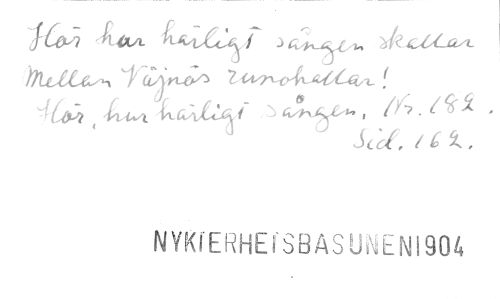 Hör hur härligt sången skallar
Mellan Väjnös runohallar!
Hör, hur härligt sången. Nr. 182.
Sid. 162.
NYKTERHETSBASUNEN1904